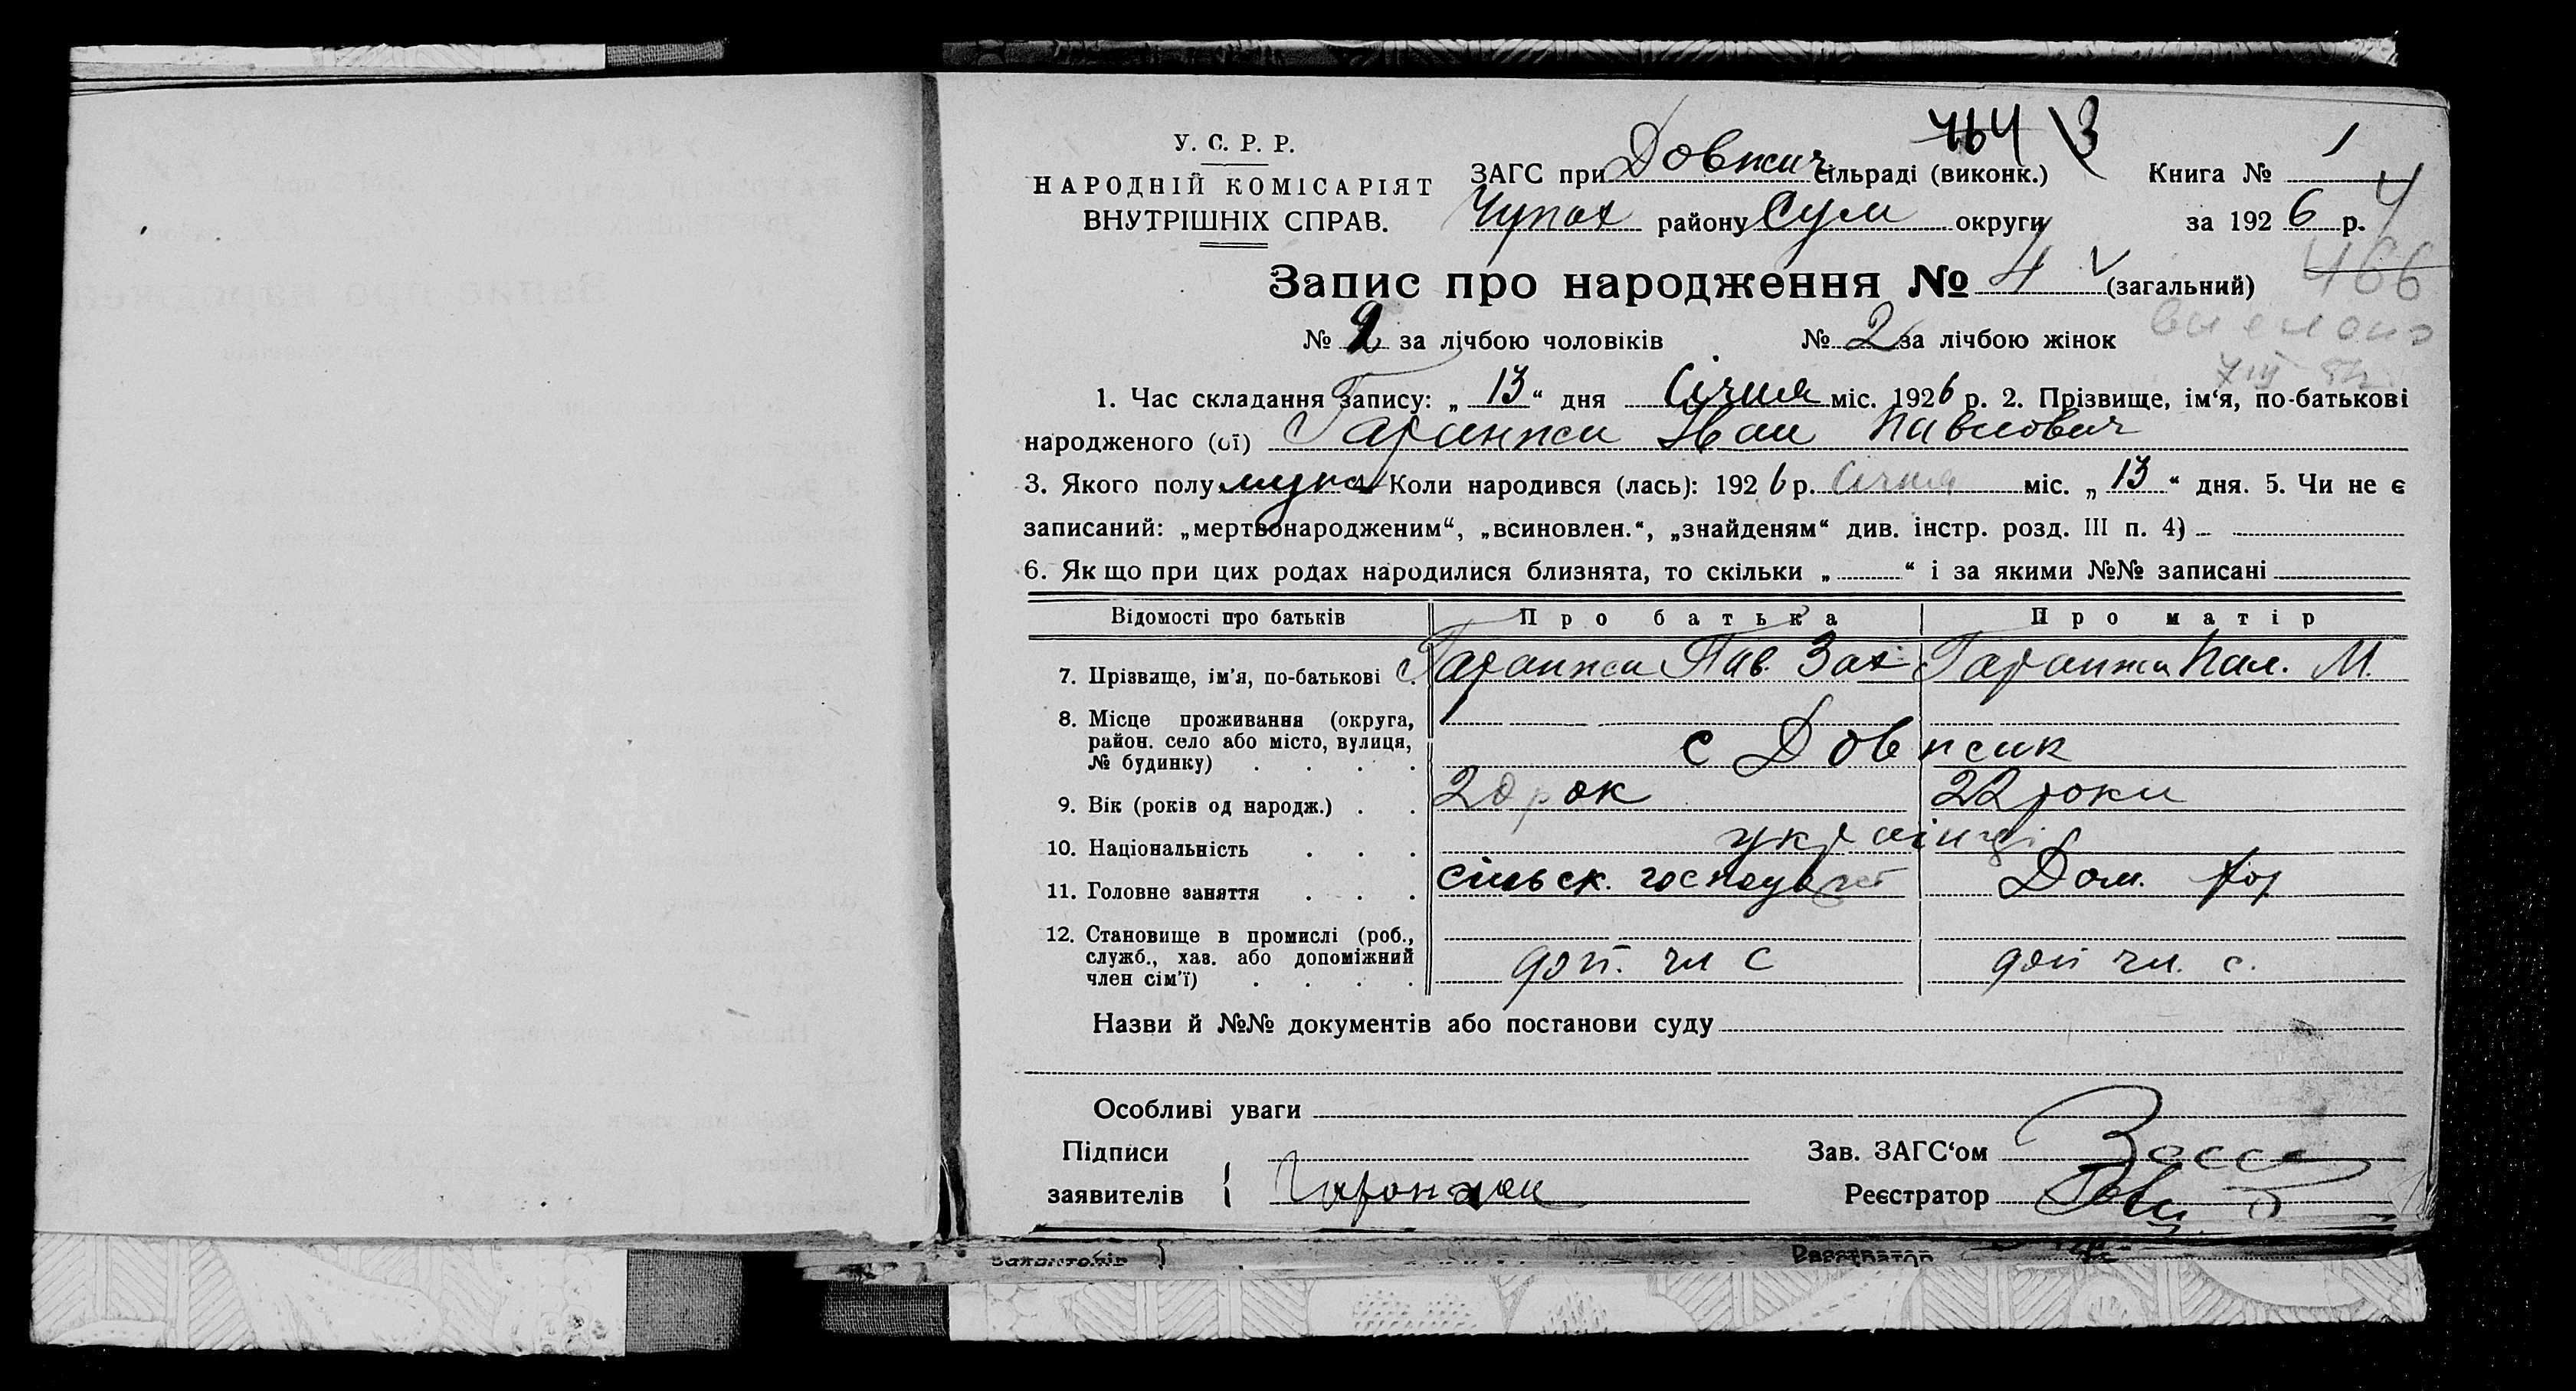 464 3
У. С. Р. Р.
НАРОДНІЙ КОМІСАРІЯТ
ВНУТРІШНІХ СПРАВ.
ЗАГС при Довжич сільраді (виконк.) Книга № 1
Чупах району Сум округи за 1926 р. 4
Запис про народження № 4 (загальний) 466
№ 2 за лічбою чоловіків № 2 за лічбою жінок
1. Час складання запису: „13“ дня Січня міс. 1926 р. 2. Прізвище, ім‘я, по-батькові
народженого (ої) Гаранжа Іван Павлович
3. Якого полу муж 4. Коли народився (лась): 1926 р. Січня міс. „13“ дня. 5. Чи не є
записаний: „мертвонародженим“, „всиновлен.“, „знайденям“ див. інстр. розд. III п. 4)
6. Як що при цих родах народилися близнята, то скільки „ “ і за якими №№ записані
Відомості про батьків Про батька Про матір
7. Прізвище, ім'я, по-батькові Гаранжа Пав. Зах Гаранжа Пал. М.
8. Місце проживання (округа,
район. село або місто, вулиця,
№ будинку) с Довжик
9. Вік (років од народж.) 20 рок 22 роки
10. Національність українці
11. Головне заняття сільск. господ Дом.
12. Становище в промислі (роб.,
служб., хаз. або допоміжний
член сім'ї) доп. чл с доп чл. с.
Назви й №№ документів або постанови суду
Особливі уваги
Підписи Зав. ЗАГС‘ом
заявителів Гаронжа Реєстратор
заявителів Реєстратор